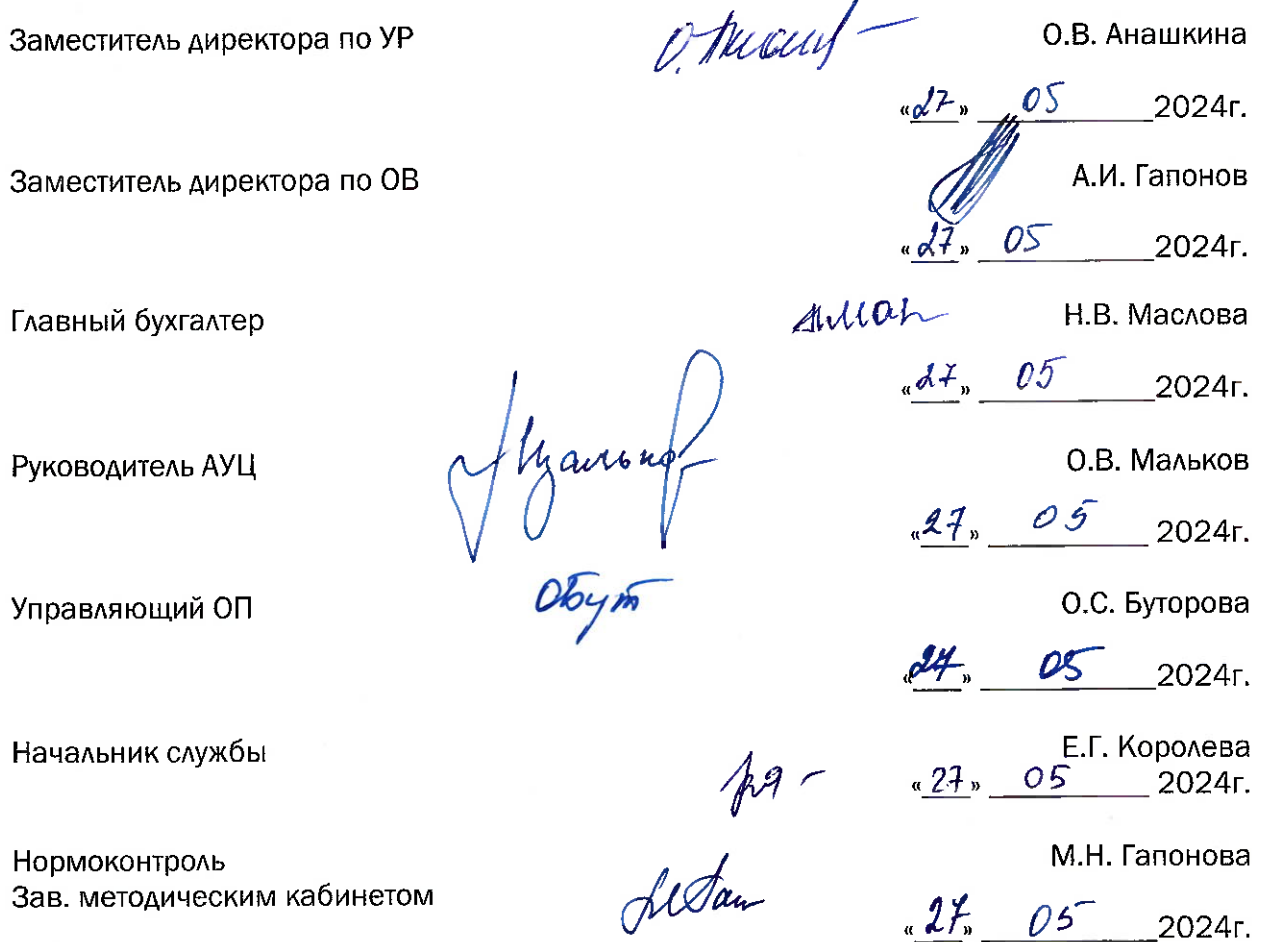 Заместитель директора по УР О.В. Анашкина
«27» 05 2024г.
Заместитель директора по ОВ А.И. Гапонов
«27» 05 2024г.
Главный бухгалтер Н.В. Маслова
«27» 05 2024г.
Руководитель АУЦ О.В. Мальков
«27» 05 2024г.
Управляющий ОП О.С. Буторова
«27» 05 2024г.
Начальник службы Е.Г. Королева
«27» 05 2024г.
Нормоконтроль М.Н. Гапонова
Зав. методическим кабинетом
«27» 05 2024г.